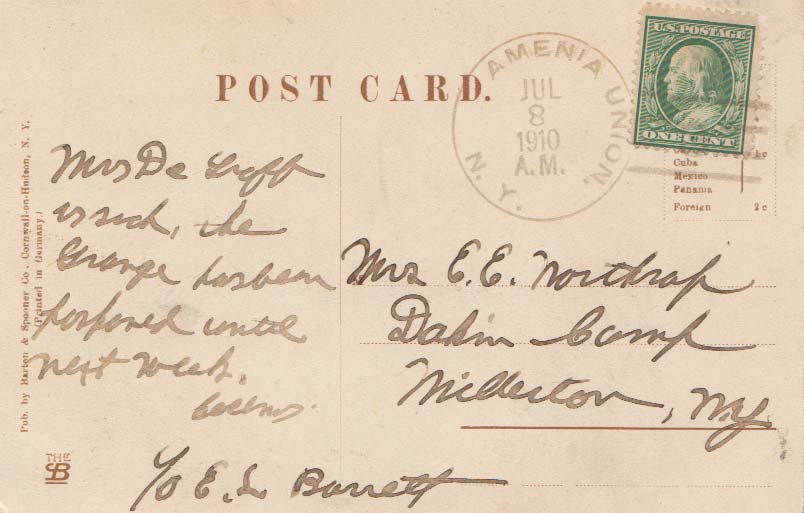 POST CARD.
AMENIA UNION,
N. Y.
JUL
8
1910
A.M.
U.S. POSTAGE
ONE CENT
Cuba
Mexico
Panama
Foreign 2c
Mrs De Groff
is sick, the
Grange has been
posponed until
next week.
Mrs E. E. Northrop
Dakin Camp
Millerton, NY
℅ E. L. Barrett
Pub. by Barton & Spooner Co., Cornwall-on-Hudson, N. Y.
(Printed in Germany.)
THE
SB